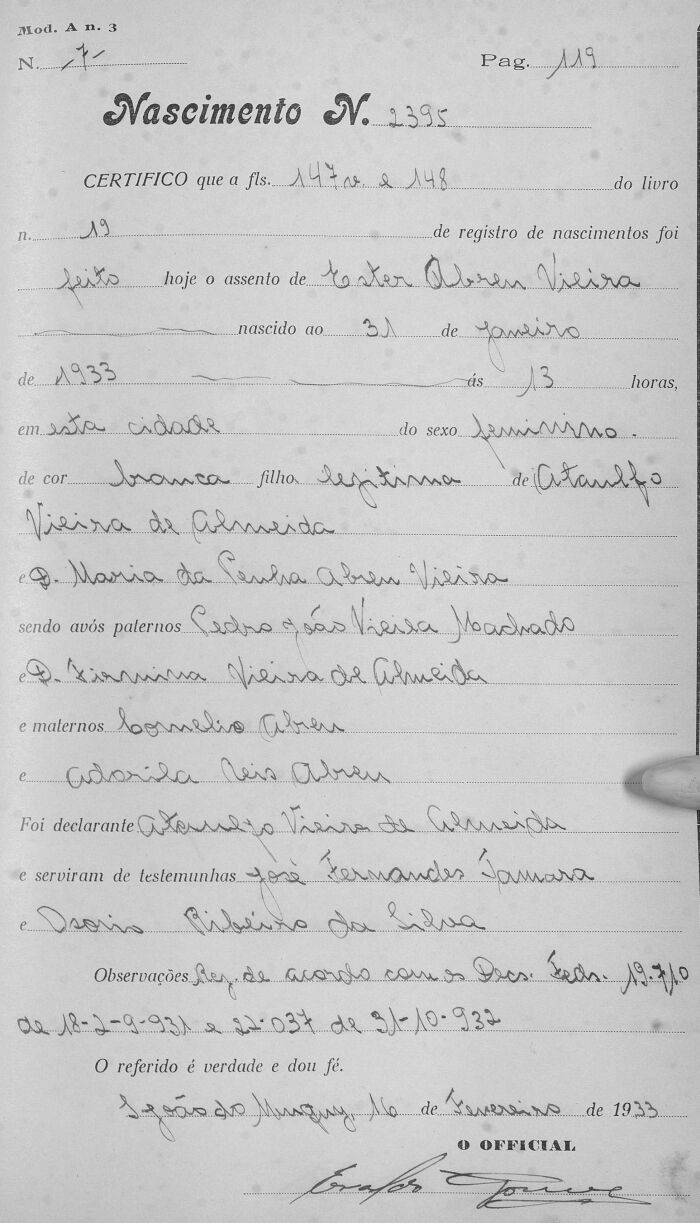 Mod. A n. 3
N. 7 Pag. 119
Nascimento N. 2395
CERTIFICO que a fls. 147v. e 148 do livro
n. 19 de registro de nascimentos foi
feito hoje o assento de Ester Abreu Vieira
nascido ao 31 de janeiro
de 1933 ás 13 horas,
em esta cidade do sexo feminino.
de cor branca filho legitima de Ataulfo
Vieira de Almeida
e D. Maria da Penha Abreu Vieira
sendo avós paternos Pedro João Vieira Machado
e D. Firmina Vieira de Almeida
e maternos Cornelio Abreu
e Adorila Reis Abreu
Foi declarante Ataulfo Vieira de Almeida
e serviram de testemunhas José Fernandes Tamara
e Osorio Ribeiro da Silva
Observações Reg. de acordo com os Decs. Feds. 19.710
de 18-2-9-931 e 22.037 de 31-10-932
O referido é verdade e dou fé.
S. João do Muquy, 16 de Fevereiro de 1933
O OFFICIAL